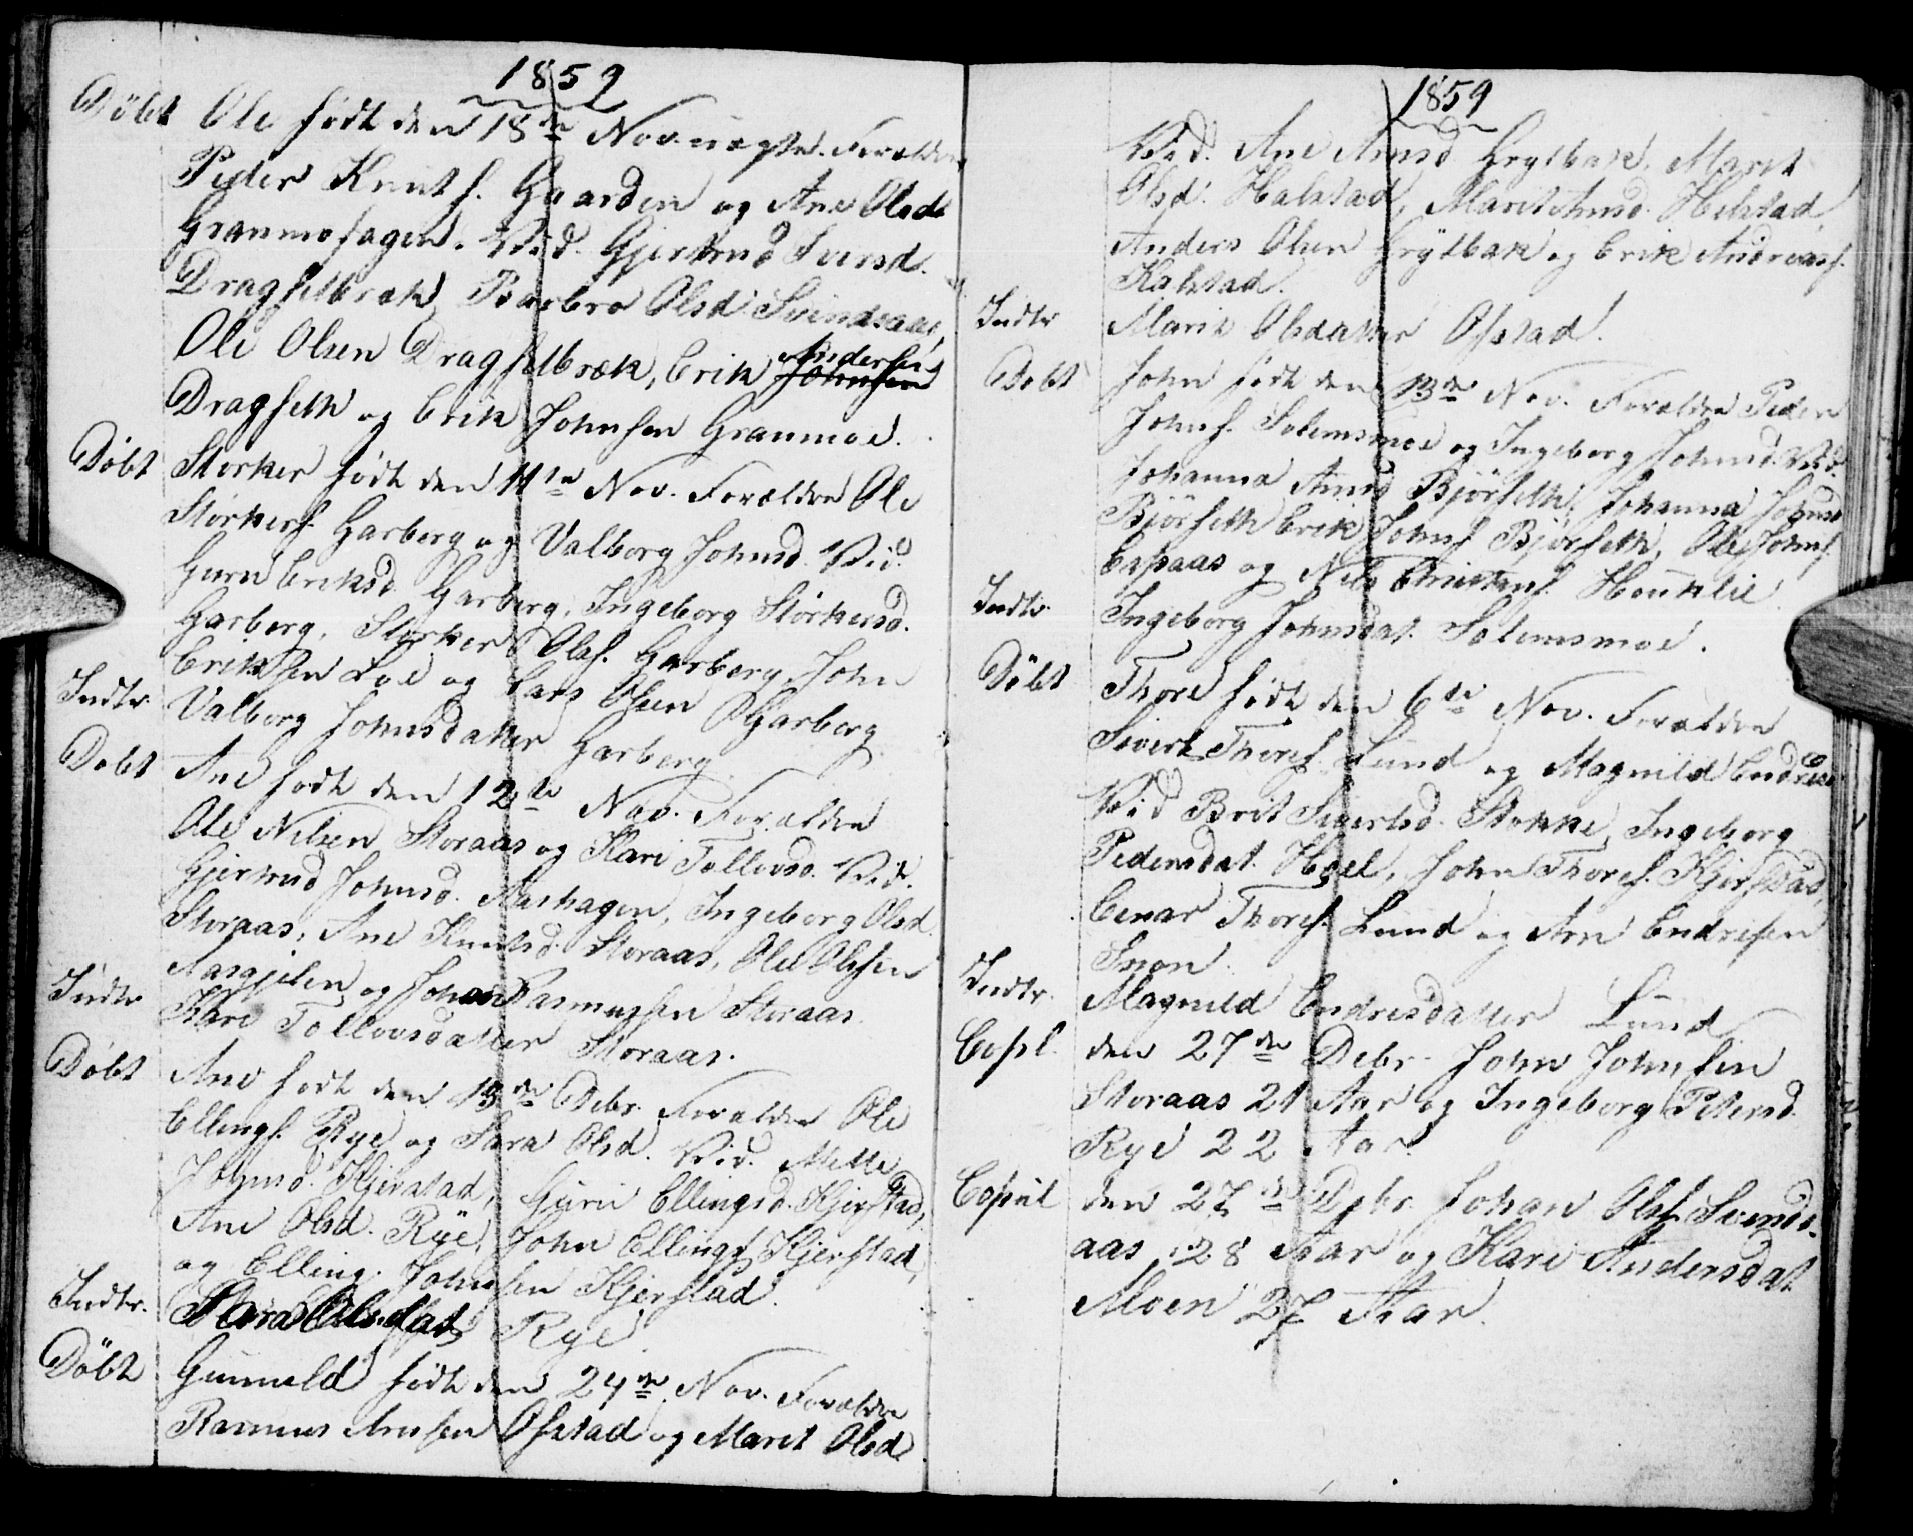 1859
Döbt Ole født den 18de Nov. uægte. Forældre
Peder Knutf. Gaarden og Ane Olsd.
Granmofagen. Vid. Gjertrud Iversd.
Dragsetbræk, Barbro Olsd. Svindsaas,
Ole Olsen Dragsetbræk, Erik Johnsen Andersen
Dragseth og Erik Johnsen Granmoe.
Döbt Storker født den 11te Nov. Forældre Ole
Storkersf. Garberg og Valborg Johnsd. Vid.
Guru Eriksd. Garberg, Ingeborg Storkersd.
Garberg, Storker Olsf. Garberg, John
Eriksen Loe og Lars Olsen Garberg
Indtr. Valborg Johnsdatter Garberg
Döbt Ane født den 12te Nov. Forældre
Ole Nilsen Storaas og Kari Tollevsd. Vid.
Gjertrud Johnsd. Aashagen, Ingeborg Olsd.
Storaas, Ane Knutsd. Storaas, Ole Olsen
Aasgjelen og Johan Rasmussen Storaas.
Indtr. Kari Tollevsdatter Storaas.
Döbt Ane født den 13de Debr. Forældre Ole
Ellingf. Rye og Sara Olsd. Vid. Mette
Johnsd. Kjerstad, Guru Ellingsd. Kjerstad,
Ane Olsd. Rye, John Ellingf. Kjerstad,
og Elling Johnsen Kjerstad.
Indtr. Sara Olsdat Rye
Döbt Gunneld født den 24de Nov. Forældre
Rasmus Arnsen Ofstad og Marit Olsd.
1859
Vid. Ane Arnsd. Grytbak, Marit
Olsd. Halstad, Marit Arnsd. Helstad,
Anders Olsen Grytbak og Erik Andreasf.
Kalstad.
Indtr. Marit Olsdatter Ofstad.
Döbt John født den 13de Nov. Forældre Peder
Johnf. Solemsmoe og Ingeborg Johnsd. Vid.
Johanna Arnsd. Björseth, Johanna Johnsd.
Björseth Erik Johnf. Björseth, Ole Johnf.
Espaas og Nils Christenf. Houklie
Indtr. Ingeborg Johnsdat. Solemsmoe.
Döbt Thore født den 6te Nov. Forældre
Sivert Thoref. Lund og Magnild Endresd
Vid Brit Sivertsd. Stokke, Ingeborg
Pedersdat. Hoel, John Thoref. Kjerstad,
Einar Thoref. Lund og Arn Endresen
Snoen.
Indtr. Magnild Endresdatter Lund
Copl. den 27de Debr. John Johnsen
Storaas 21 Aar og Ingeborg Petersd.
Rye 22 Aar.
Copul den 27de Debr. Johan Olsf. Svinds-
aas, 28 Aar og Kari Andersdat.
Moen 27 Aar.